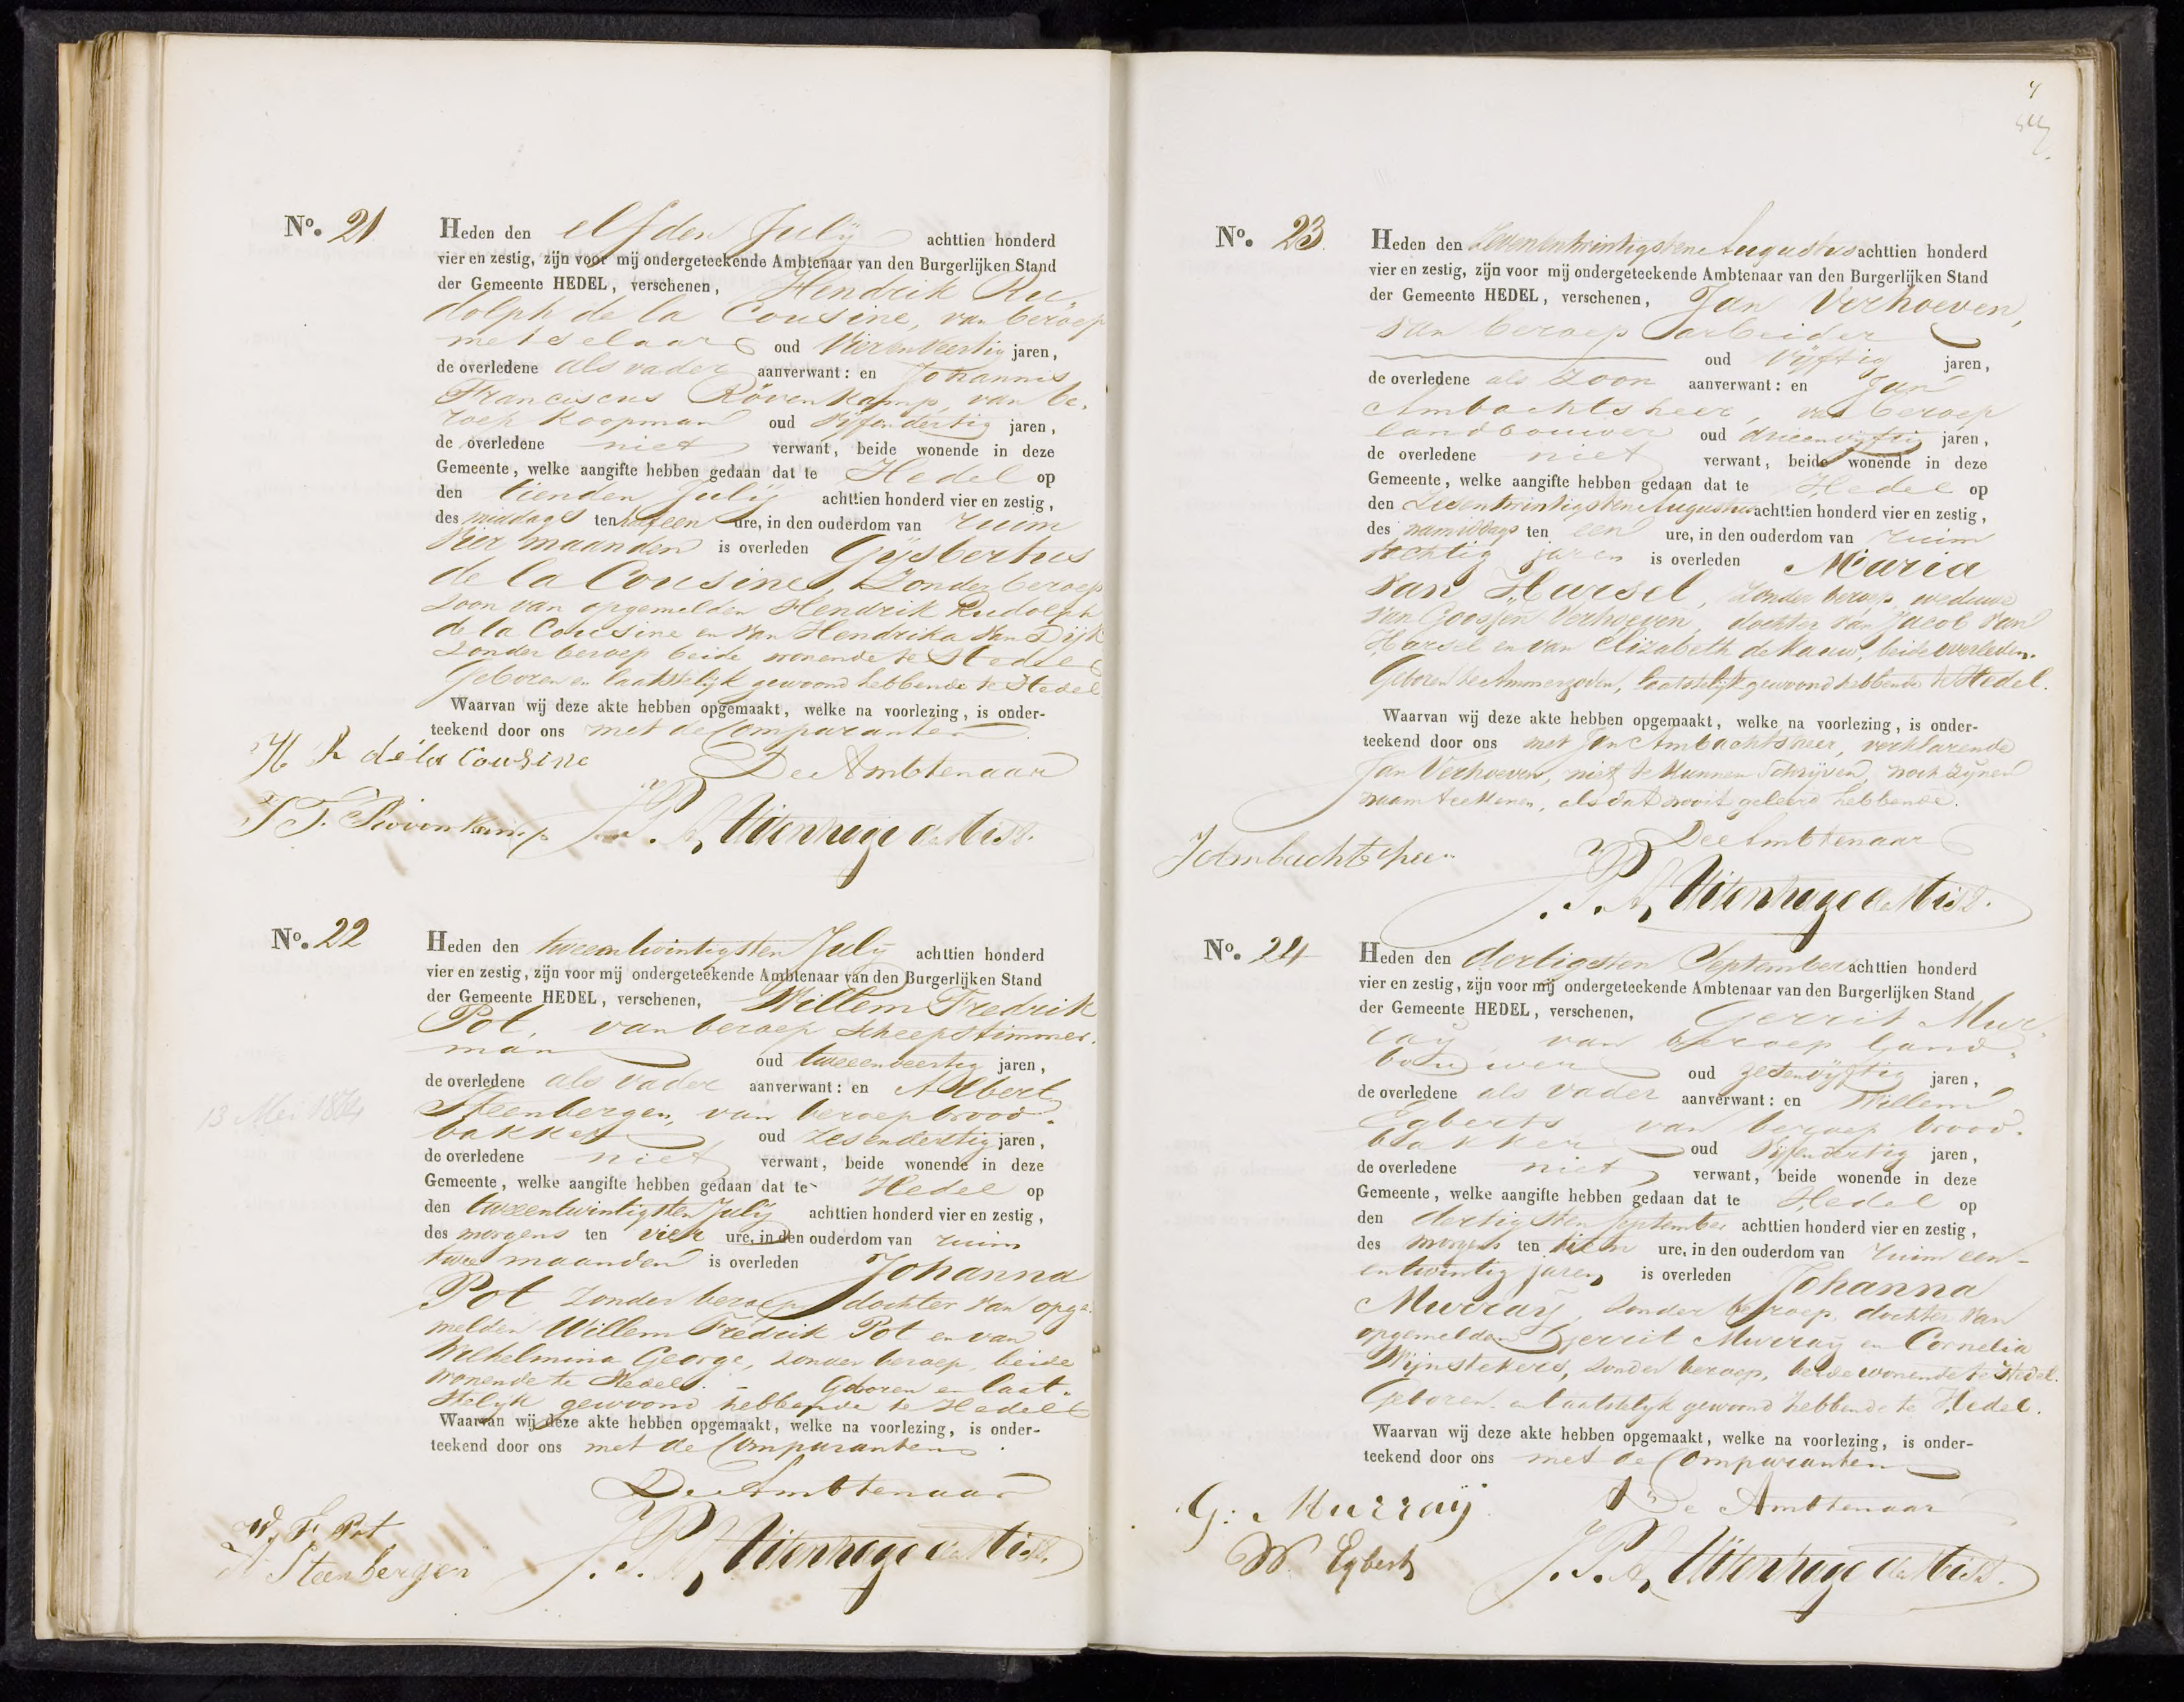 No. 21
Heden den elfden Julij achttien honderd
vier en zestig, zijn voor mij ondergeteekende Ambtenaar van den Burgerlijken Stand
der Gemeente HEDEL, verschenen, Hendrik Ru-
dolph de la Cousine, van beroep
metselaar oud vierenveertig jaren,
de overledene als vader aanverwant: en Johannis
Franciscus Rövenkamp, van be-
roep koopman oud vijfendertig jaren,
de overledene niet verwant, beide wonende in deze
Gemeente, welke aangifte hebben gedaan dat te Hedel op
den tienden Julij achttien honderd vier en zestig,
des middags ten half een ure, in den ouderdom van ruim
vier maanden is overleden Gijsbertus
de la Cousine, zonder beroep
zoon van opgemelden Hendrik Rudolph
de la Cousine en van Hendrika van Dijk
zonder beroep beide wonende te Hedel
Geboren en laatstelijk gewoond hebbende te Hedel
Waarvan wij deze akte hebben opgemaakt, welke na voorlezing, is onder-
teekend door ons met de Comparanten
De Ambtenaar
H R de la Cousine
J F. Rövenkamp
J. P. A, Uitenhage de Mist.
No. 22
Heden den tweentwintigsten Julij achttien honderd
vier en zestig, zijn voor mij ondergeteekende Ambtenaar van den Burgerlijken Stand
der Gemeente HEDEL, verschenen, Willem Fredrik
Pot, van beroep scheepstimmer-
man oud tweeenveertig jaren,
de overledene als vader aanverwant: en Albert
Steenbergen, van beroep brood-
bakker oud zesendertig jaren,
13 Mei 1864
de overledene niet verwant, beide wonende in deze
Gemeente, welke aangifte hebben gedaan dat te Hedel op
den tweeentwintigsten Julij achttien honderd vier en zestig,
des morgens ten vier ure, in den ouderdom van ruim
twee maanden is overleden Johanna
Pot zonder beroep dochter van opge-
melden Willem Fredrik Pot en van
Wilhelmina George, zonder beroep, beide
wonende te Hedel. - Geboren en laat-
stelijk gewoond hebbende te Hedel
Waarvan wij deze akte hebben opgemaakt, welke na voorlezing, is onder-
teekend door ons met de Comparanten.
De Ambtenaar
W. F. Pot
A Steenbergen
J. P. A, Uitenhage de Mist.
No. 23.
Heden den zevenentwintigsten Augustus achttien honderd
vier en zestig, zijn voor mij ondergeteekende Ambtenaar van den Burgerlijken Stand
der Gemeente HEDEL, verschenen, Jan Verhoeven,
van beroep arbeider
oud vijftig jaren,
de overledene als zoon aanverwant: en Jan
Ambachtsheer, van beroep
landbouwer oud drieenvijftig jaren,
de overledene niet verwant, beide wonende in deze
Gemeente, welke aangifte hebben gedaan dat te Hedel op
den zesentwintigsten Augustus achttien honderd vier en zestig,
des namiddags ten een ure, in den ouderdom van ruim
tachtig jaren is overleden Maria
van Harsel, zonder beroep, weduwe
van Goossen Verhoeven, dochter van Jacob van
Harsel en van Elizabeth de Kauw, beide overleden.
Geboren te Ammerzoden, laatstelijk gewoond hebbende te Hedel.
Waarvan wij deze akte hebben opgemaakt, welke na voorlezing, is onder-
teekend door ons met Jan Ambachtsheer, verklarende
Jan Verhoeven, niet te kunnen schrijven, noch zijnen
naam teekenen, als dat nooit geleerd hebbende.
De Ambtenaar
J Ambachtsheer
J. P. A, Uitenhage de Mist.
No. 24
Heden den dertigsten September achttien honderd
vier en zestig, zijn voor mij ondergeteekende Ambtenaar van den Burgerlijken Stand
der Gemeente HEDEL, verschenen, Gerrit Mur-
raij, van beroep land-
bouwer oud zesenvijftig jaren,
de overledene als vader aanverwant: en Willem
Egberts van beroep brood-
bakker oud vijfendertig jaren,
de overledene niet verwant, beide wonende in deze
Gemeente, welke aangifte hebben gedaan dat te Hedel op
den dertigsten September achttien honderd vier en zestig,
des morgens ten tien ure, in den ouderdom van ruim een-
entwintig jaren is overleden Johanna
Murraij, zonder beroep, dochter van
opgemelden Gerrit Murraij en Cornelia
Wijnstekers, zonder beroep, beide wonende te Hedel.
Geboren en laatstelijk gewoond hebbende te Hedel.
Waarvan wij deze akte hebben opgemaakt, welke na voorlezing, is onder-
teekend door ons met de Comparanten
De Ambtenaar
G: Murraij
W. Egberts
J. P. A, Uitenhage de Mist.